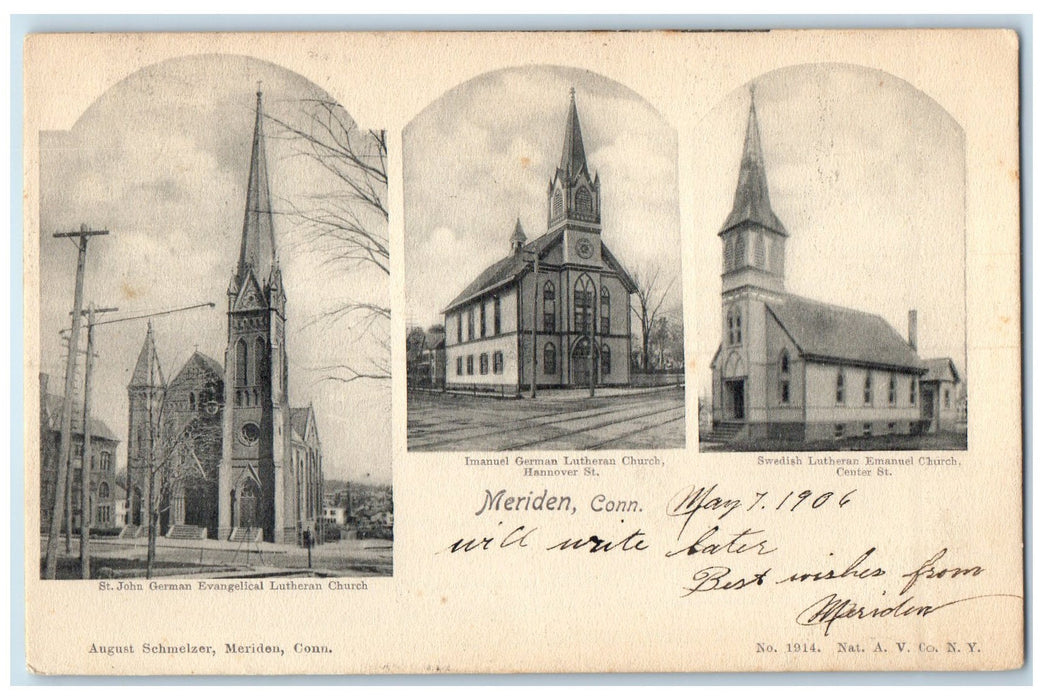 Imanuel German Lutheran Church,
Hannover St.
Swedish Lutheran Emanuel Church,
Center St.
Meriden, Conn. May 7. 1906
will write later
Best wishes from
Meriden
St. John German Evangelical Lutheran Church
August Schmelzer, Meriden, Conn.
No. 1914. Nat. A. V. Co. N. Y.